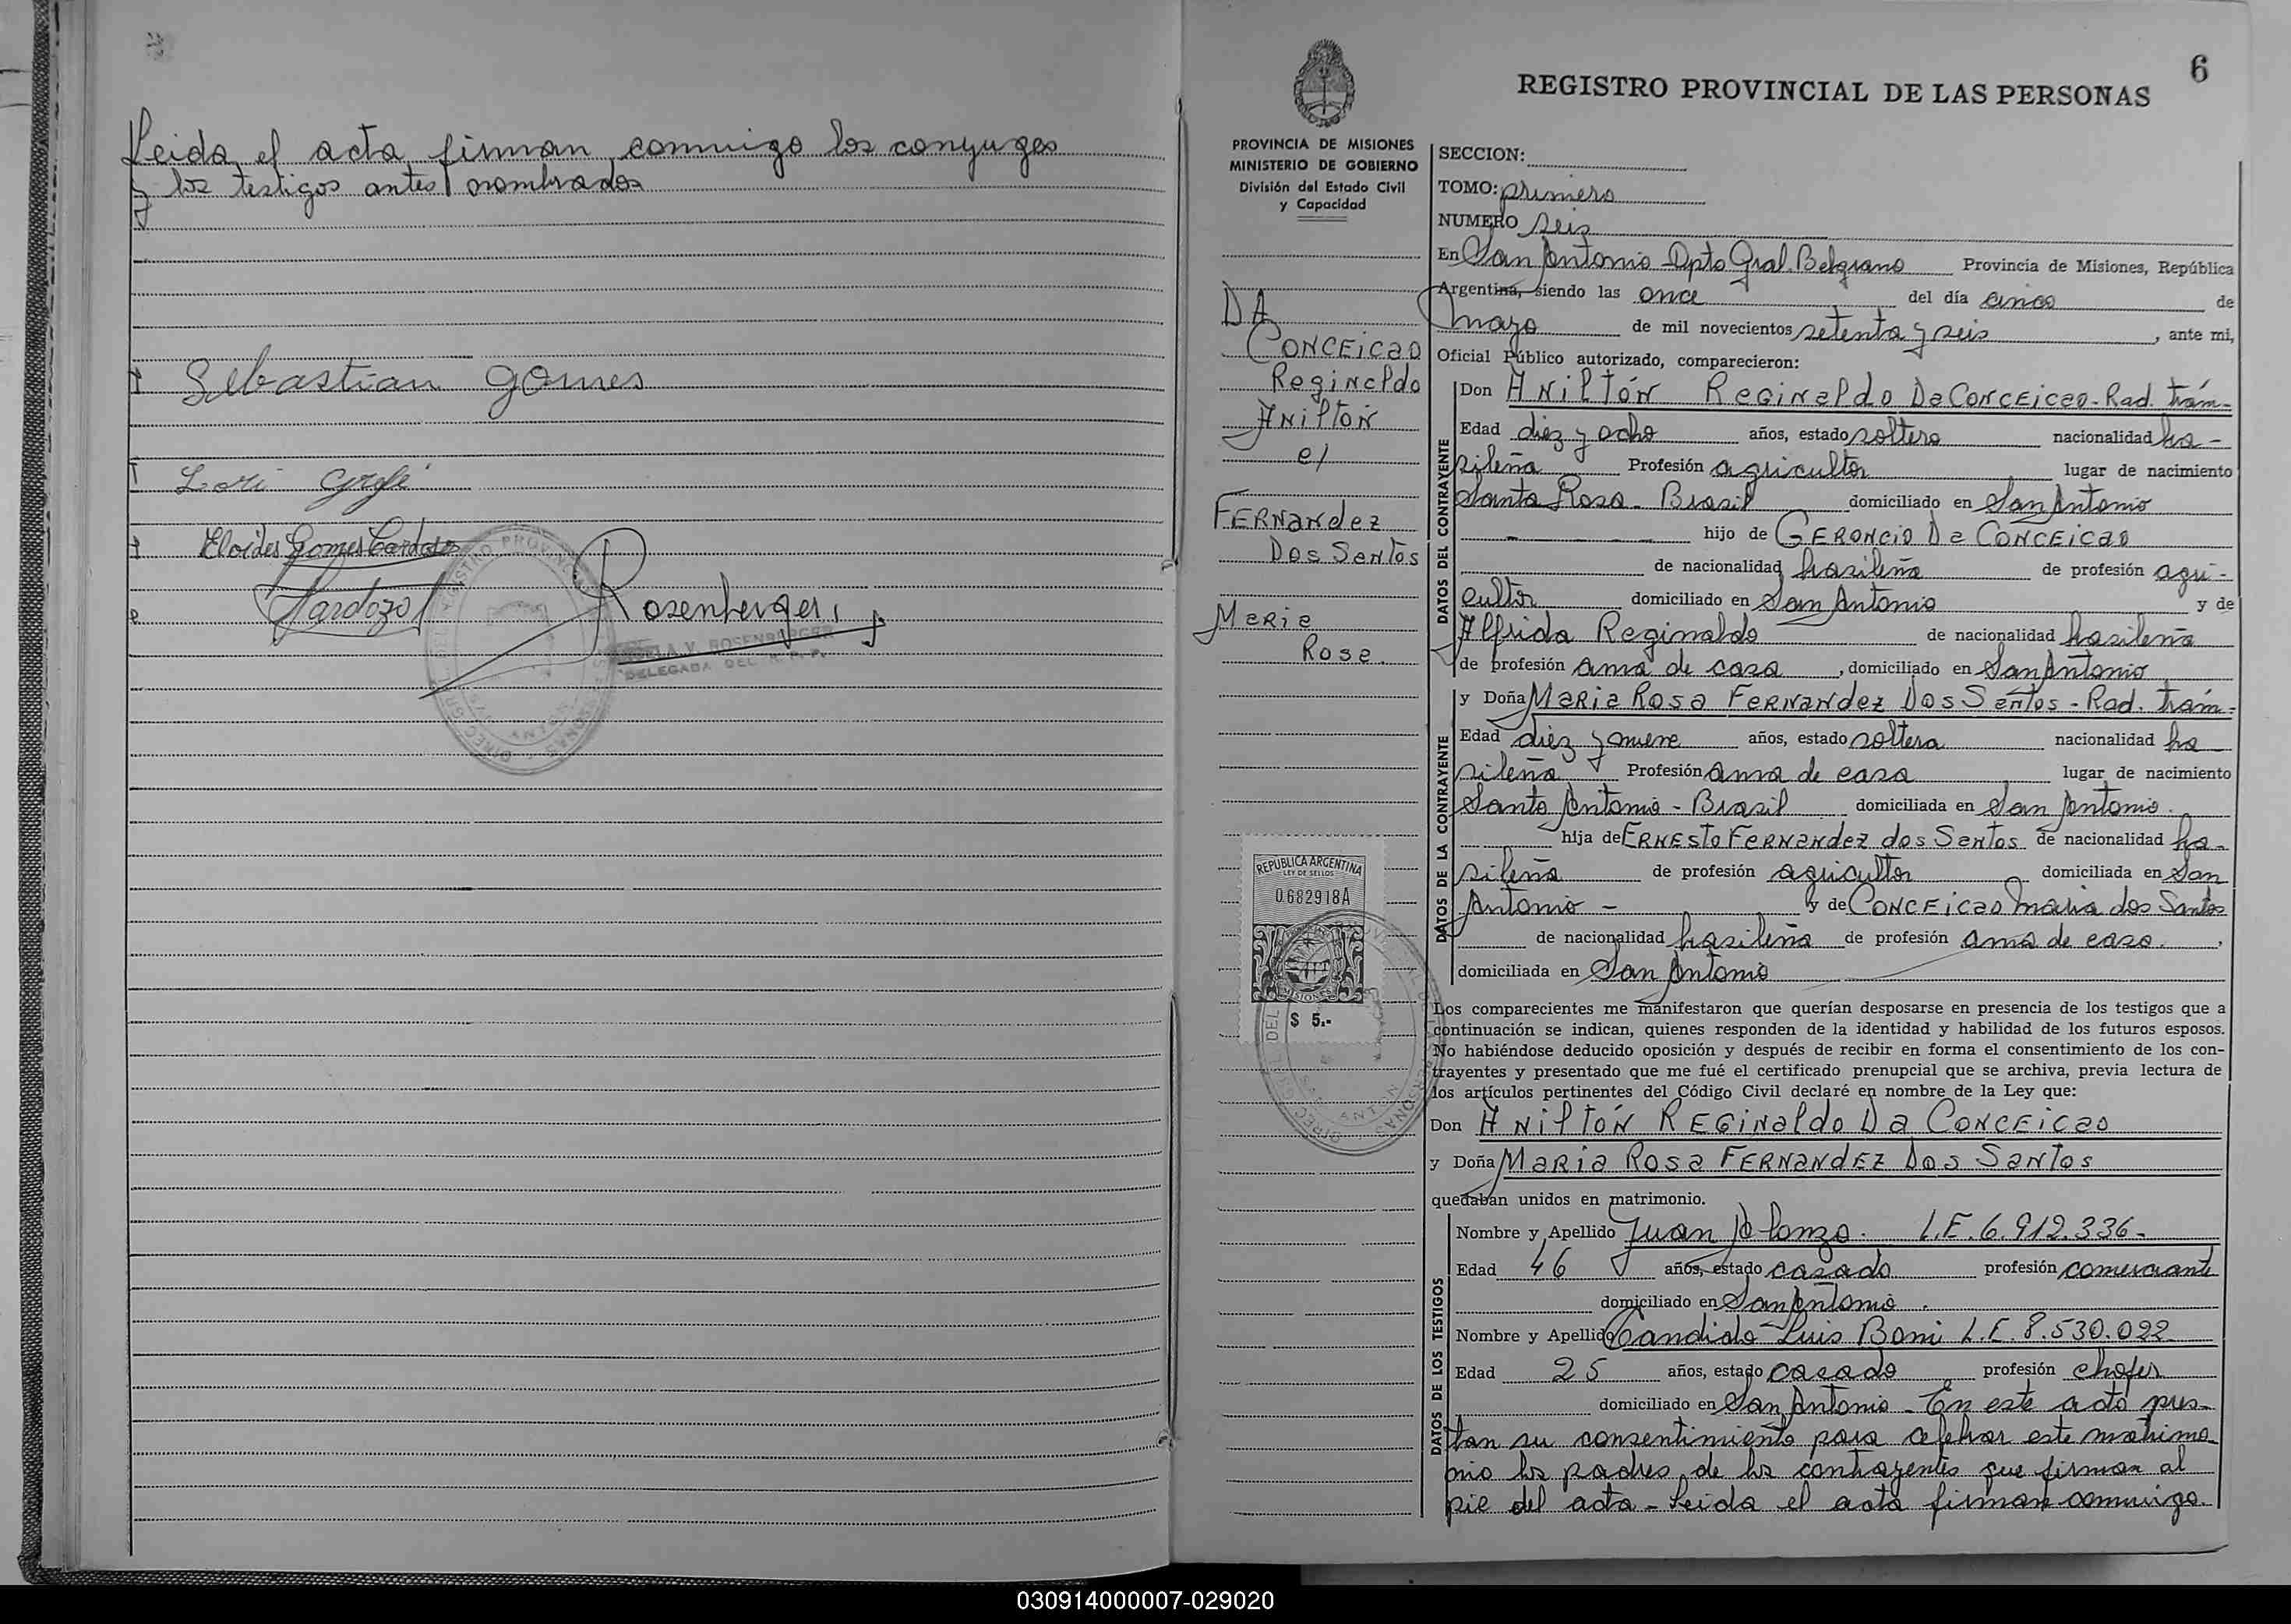 Leida el acta firman conmigo los conyuges
y los testigos antes nombrados
Sebastian gomes
Lori
Eloides Gomes Cardoso
Cardozo
Rosenberger
ROSENBERGER
DELEGADA DEL R. P. P.
6
REGISTRO PROVINCIAL DE LAS PERSONAS
PROVINCIA DE MISIONES
MINISTERIO DE GOBIERNO
División del Estado Civil
y Capacidad
DA
CONCEICAO
Reginaldo
Anilton
c/
FERNANdez
Dos Santos
Maria
Rosa.
REPUBLICA ARGENTINA
LEY DE SELLOS
0.682918A
MISIONES
$ 5.-
SECCION:
TOMO: primero
NUMERO seis
En San Antonio Dpto Gral. Belgrano Provincia de Misiones, República
Argentina, siendo las once del día cinco de
mayo de mil novecientos setenta y seis, ante mi,
Oficial Público autorizado, comparecieron:
DATOS DEL CONTRAYENTE
Don ANiltón Reginaldo Da CONCEicao - Rad. trám-
Edad diez y ocho años, estado soltero nacionalidad bra-
sileña Profesión agricultor lugar de nacimiento
Santa Rosa - Brasil domiciliado en San Antonio
hijo de GERONCIO Da CONCEicao
de nacionalidad brasileña de profesión agri-
cultor domiciliado en San Antonio y de
Alfrida Reginaldo de nacionalidad brasileña
de profesión ama de casa, domiciliado en San Antonio
DATOS DE LA CONTRAYENTE
y Doña Maria Rosa FERNANdez Dos Santos - Rad. trám-
Edad diez y nueve años, estado soltera nacionalidad bra
sileña Profesión ama de casa lugar de nacimiento
Santo Antonio - Brasil domiciliada en San Antonio.
hija de ERNESto FERNANdez dos Santos de nacionalidad bra-
sileña de profesión agricultor domiciliada en San
Antonio - y de CONCEicao Maria dos Santos
de nacionalidad brasileña de profesión ama de casa.,
domiciliada en San Antonio
Los comparecientes me manifestaron que querían desposarse en presencia de los testigos que a
continuación se indican, quienes responden de la identidad y habilidad de los futuros esposos.
No habiéndose deducido oposición y después de recibir en forma el consentimiento de los con-
trayentes y presentado que me fué el certificado prenupcial que se archiva, previa lectura de
los artículos pertinentes del Código Civil declaré en nombre de la Ley que:
Don ANiltón REGiNaldo Da CONCEicao
y Doña MaRia Rosa FERNANdEZ Dos Santos
quedaban unidos en matrimonio.
DATOS DE LOS TESTIGOS
Nombre y Apellido Juan Alonzo. L.E. 6.912.336-
Edad 46 años, estado casado profesión comerciante
domiciliado en San Antonio.
Nombre y Apellido Candido Luis Boni L.E. 8.530.022
Edad 25 años, estado casado profesión chofer
domiciliado en San Antonio - En este acto pres-
tan su consentimiento para celebrar este matrimo-
nio los padres de los contrayentes que firman al
pie del acta - Leida el acta firman conmigo
030914000007-029020